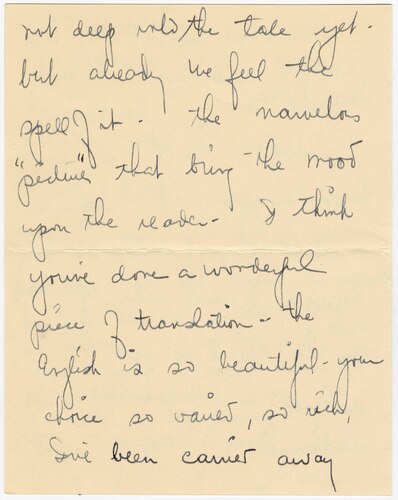 not deep into the tale yet -
but already we feel the
spell of it - the marvelous
"pictures" that bring the mood
upon the reader - I think
you've done a wonderful
piece of translation - the
English is so beautiful - your
choice so varied, so rich,
I've been carried away